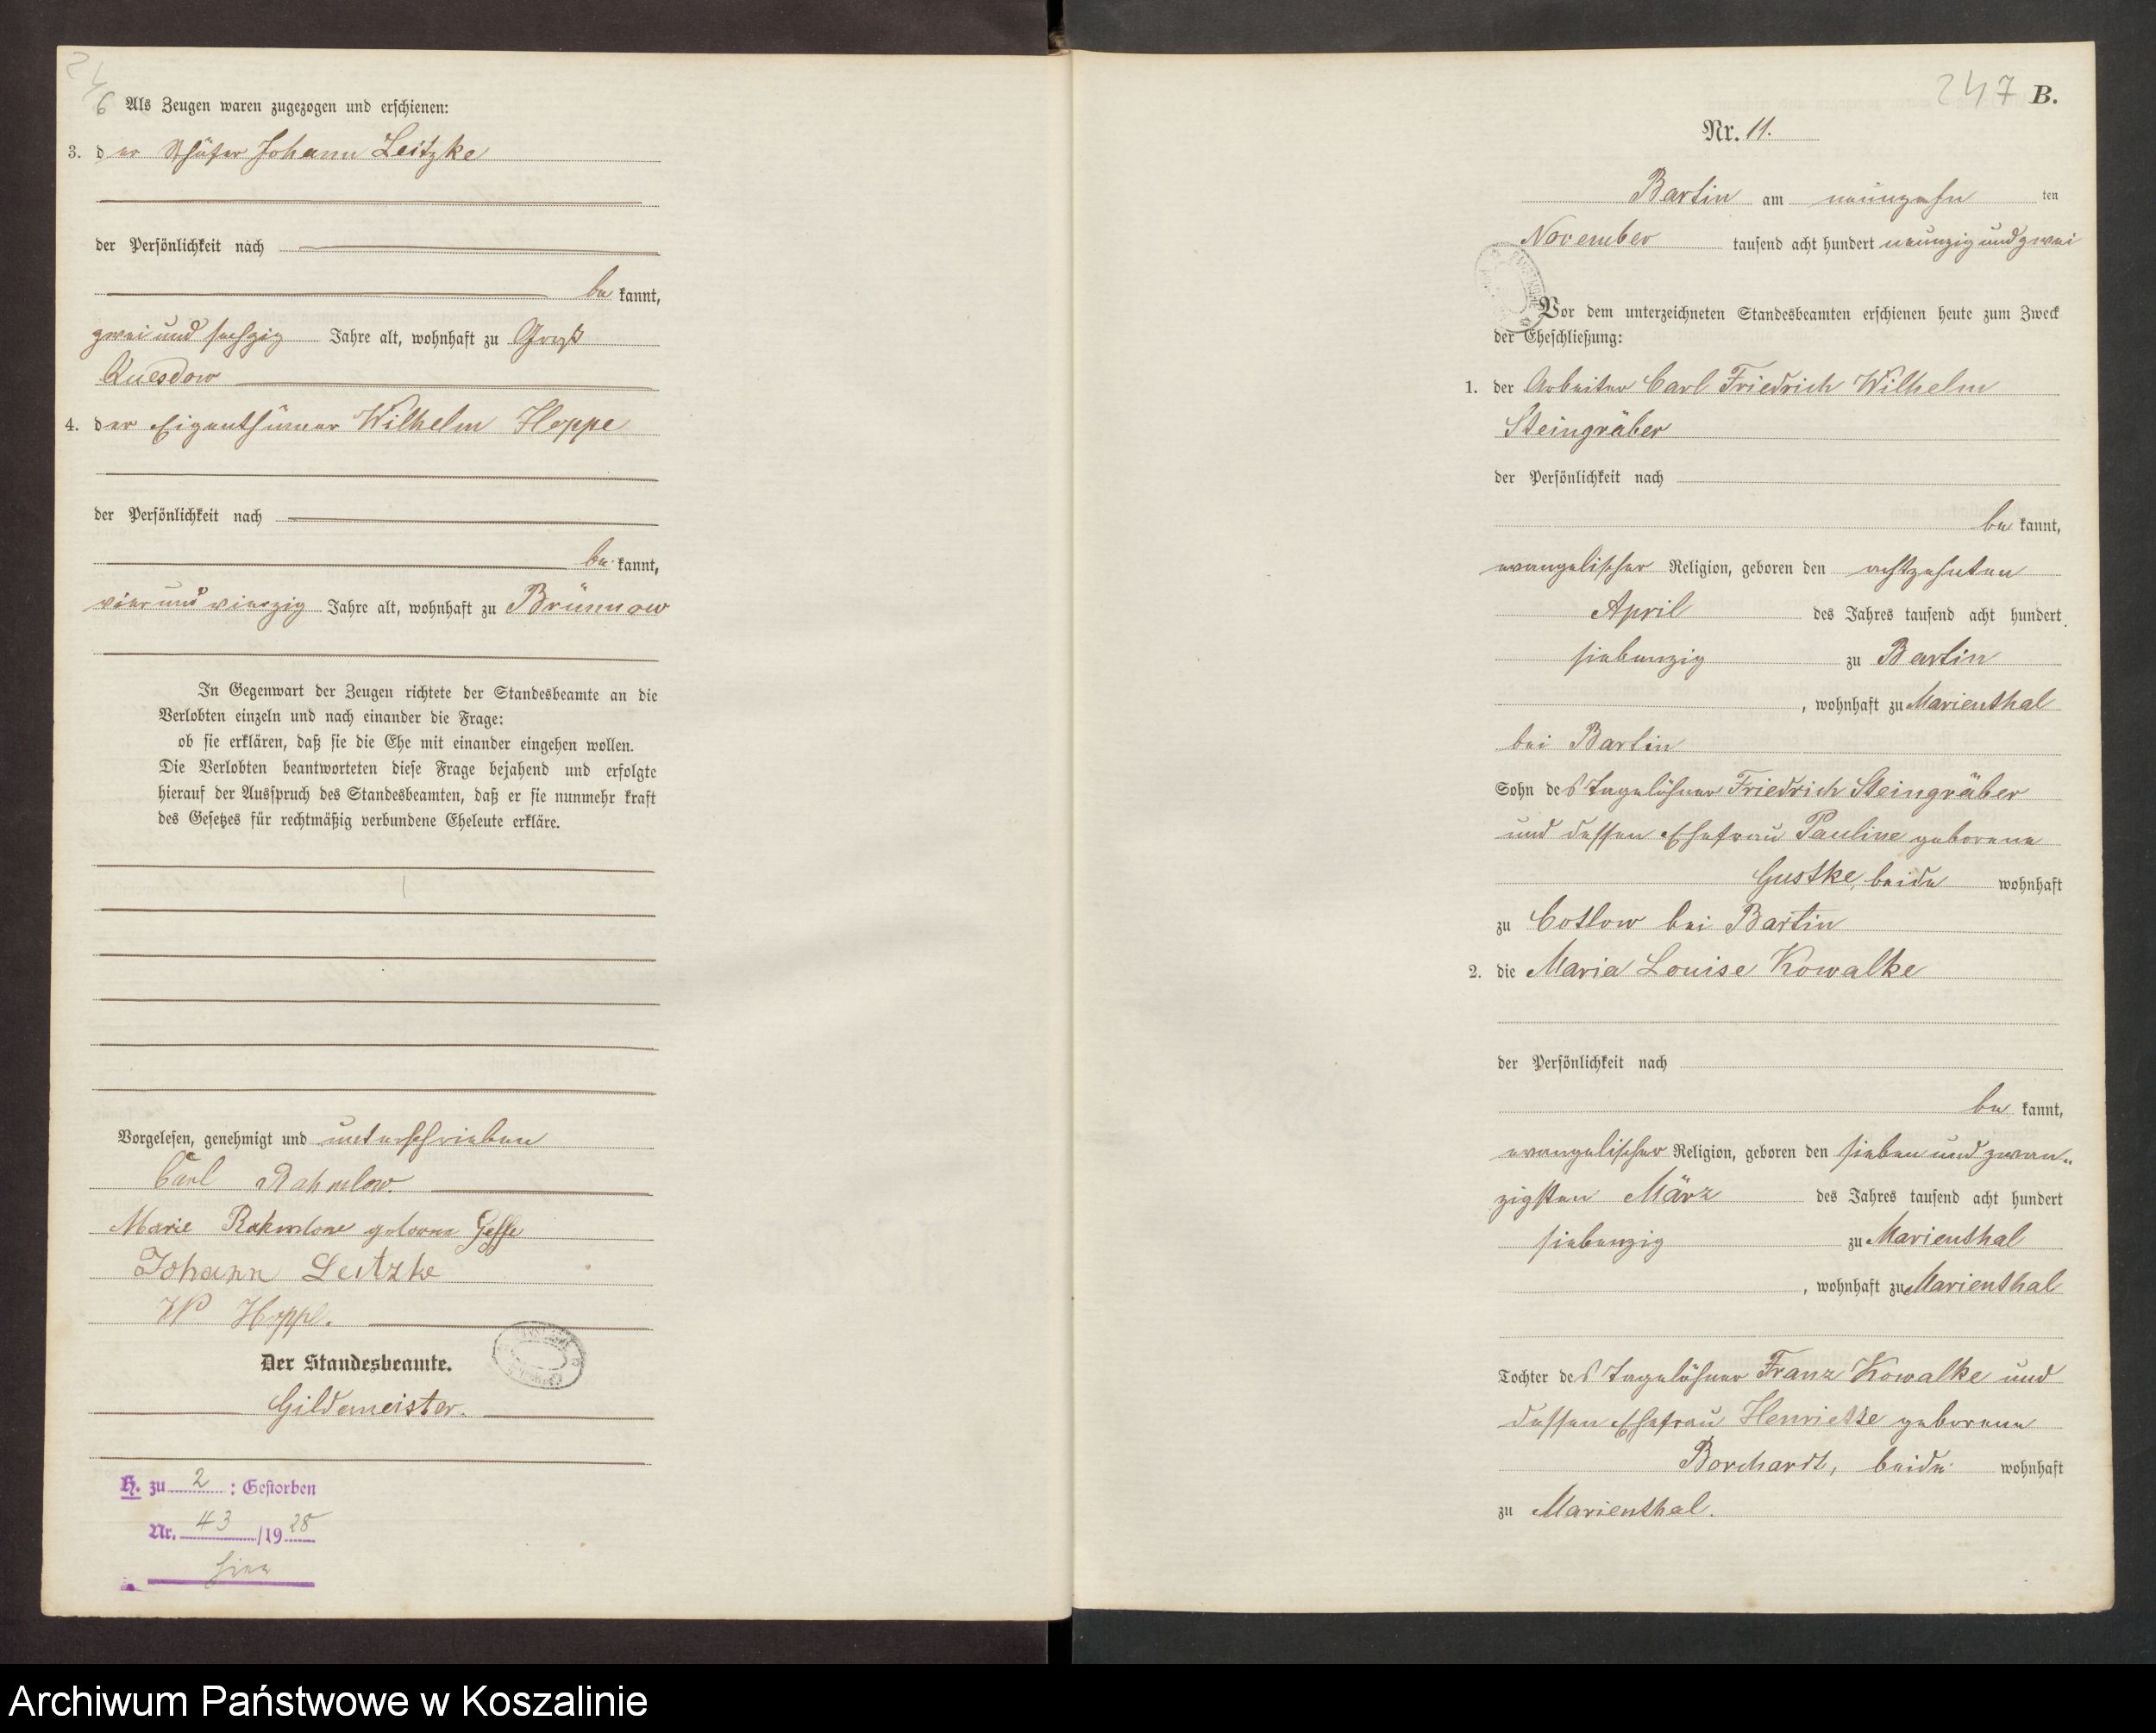 246
Als Zeugen waren zugezogen und erschienen:
3. der Schäfer Johann Leitzke
der Persönlichkeit nach
be kannt,
zwei und sechzig Jahre alt, wohnhaft zu Groß
Quesdow
4. der Eigenthümer Wilhelm Hoppe
der Persönlichkeit nach
be kannt,
vier und vierzig Jahre alt, wohnhaft zu Brünnow
In Gegenwart der Zeugen richtete der Standesbeamte an die
Verlobten einzeln und nach einander die Frage:
ob sie erklären, daß sie die Ehe mit einander eingehen wollen.
Die Verlobten beantworteten diese Frage bejahend und erfolgte
hierauf der Ausspruch des Standesbeamten, daß er sie nunmehr kraft
des Gesetzes für rechtmäßig verbundene Eheleute erkläre.
Vorgelesen, genehmigt und unterschrieben
Carl Rahmlow.
Marie Rahmlow geborne
Johann Leitzke
W Hoppe.
Der Standesbeamte.
Gildemeister.
H. zu 2 : Gestorben
Nr. 43 /19 28
hier
247 B.
Nr. 11.
Bartin am neunzehn ten
November tausend acht hundert neunzig und zwei
Vor dem unterzeichneten Standesbeamten erschienen heute zum Zweck
der Eheschließung:
1. der Arbeiter Carl Friedrich Wilhelm
Steingräber
der Persönlichkeit nach
be kannt,
evangelischer Religion, geboren den achtzehnten
April des Jahres tausend acht hundert
siebenzig zu Bartin
, wohnhaft zu Marienthal
bei Bartin
Sohn des Tagelöhner Friedrich Steingräber
und dessen Ehefrau Pauline geborene
Gustke, beide wohnhaft
zu Cotlow bei Bartin
2. die Maria Louise Kowalke
der Persönlichkeit nach
be kannt,
evangelischer Religion, geboren den sieben und zwan-
zigsten März des Jahres tausend acht hundert
siebenzig zu Marienthal
, wohnhaft zu Marienthal
Tochter des Tagelöhner Franz Kowalke und
dessen Ehefrau Henriette geborene
Borchardt, beide wohnhaft
zu Marienthal.
Archiwum Państwowe w Koszalinie